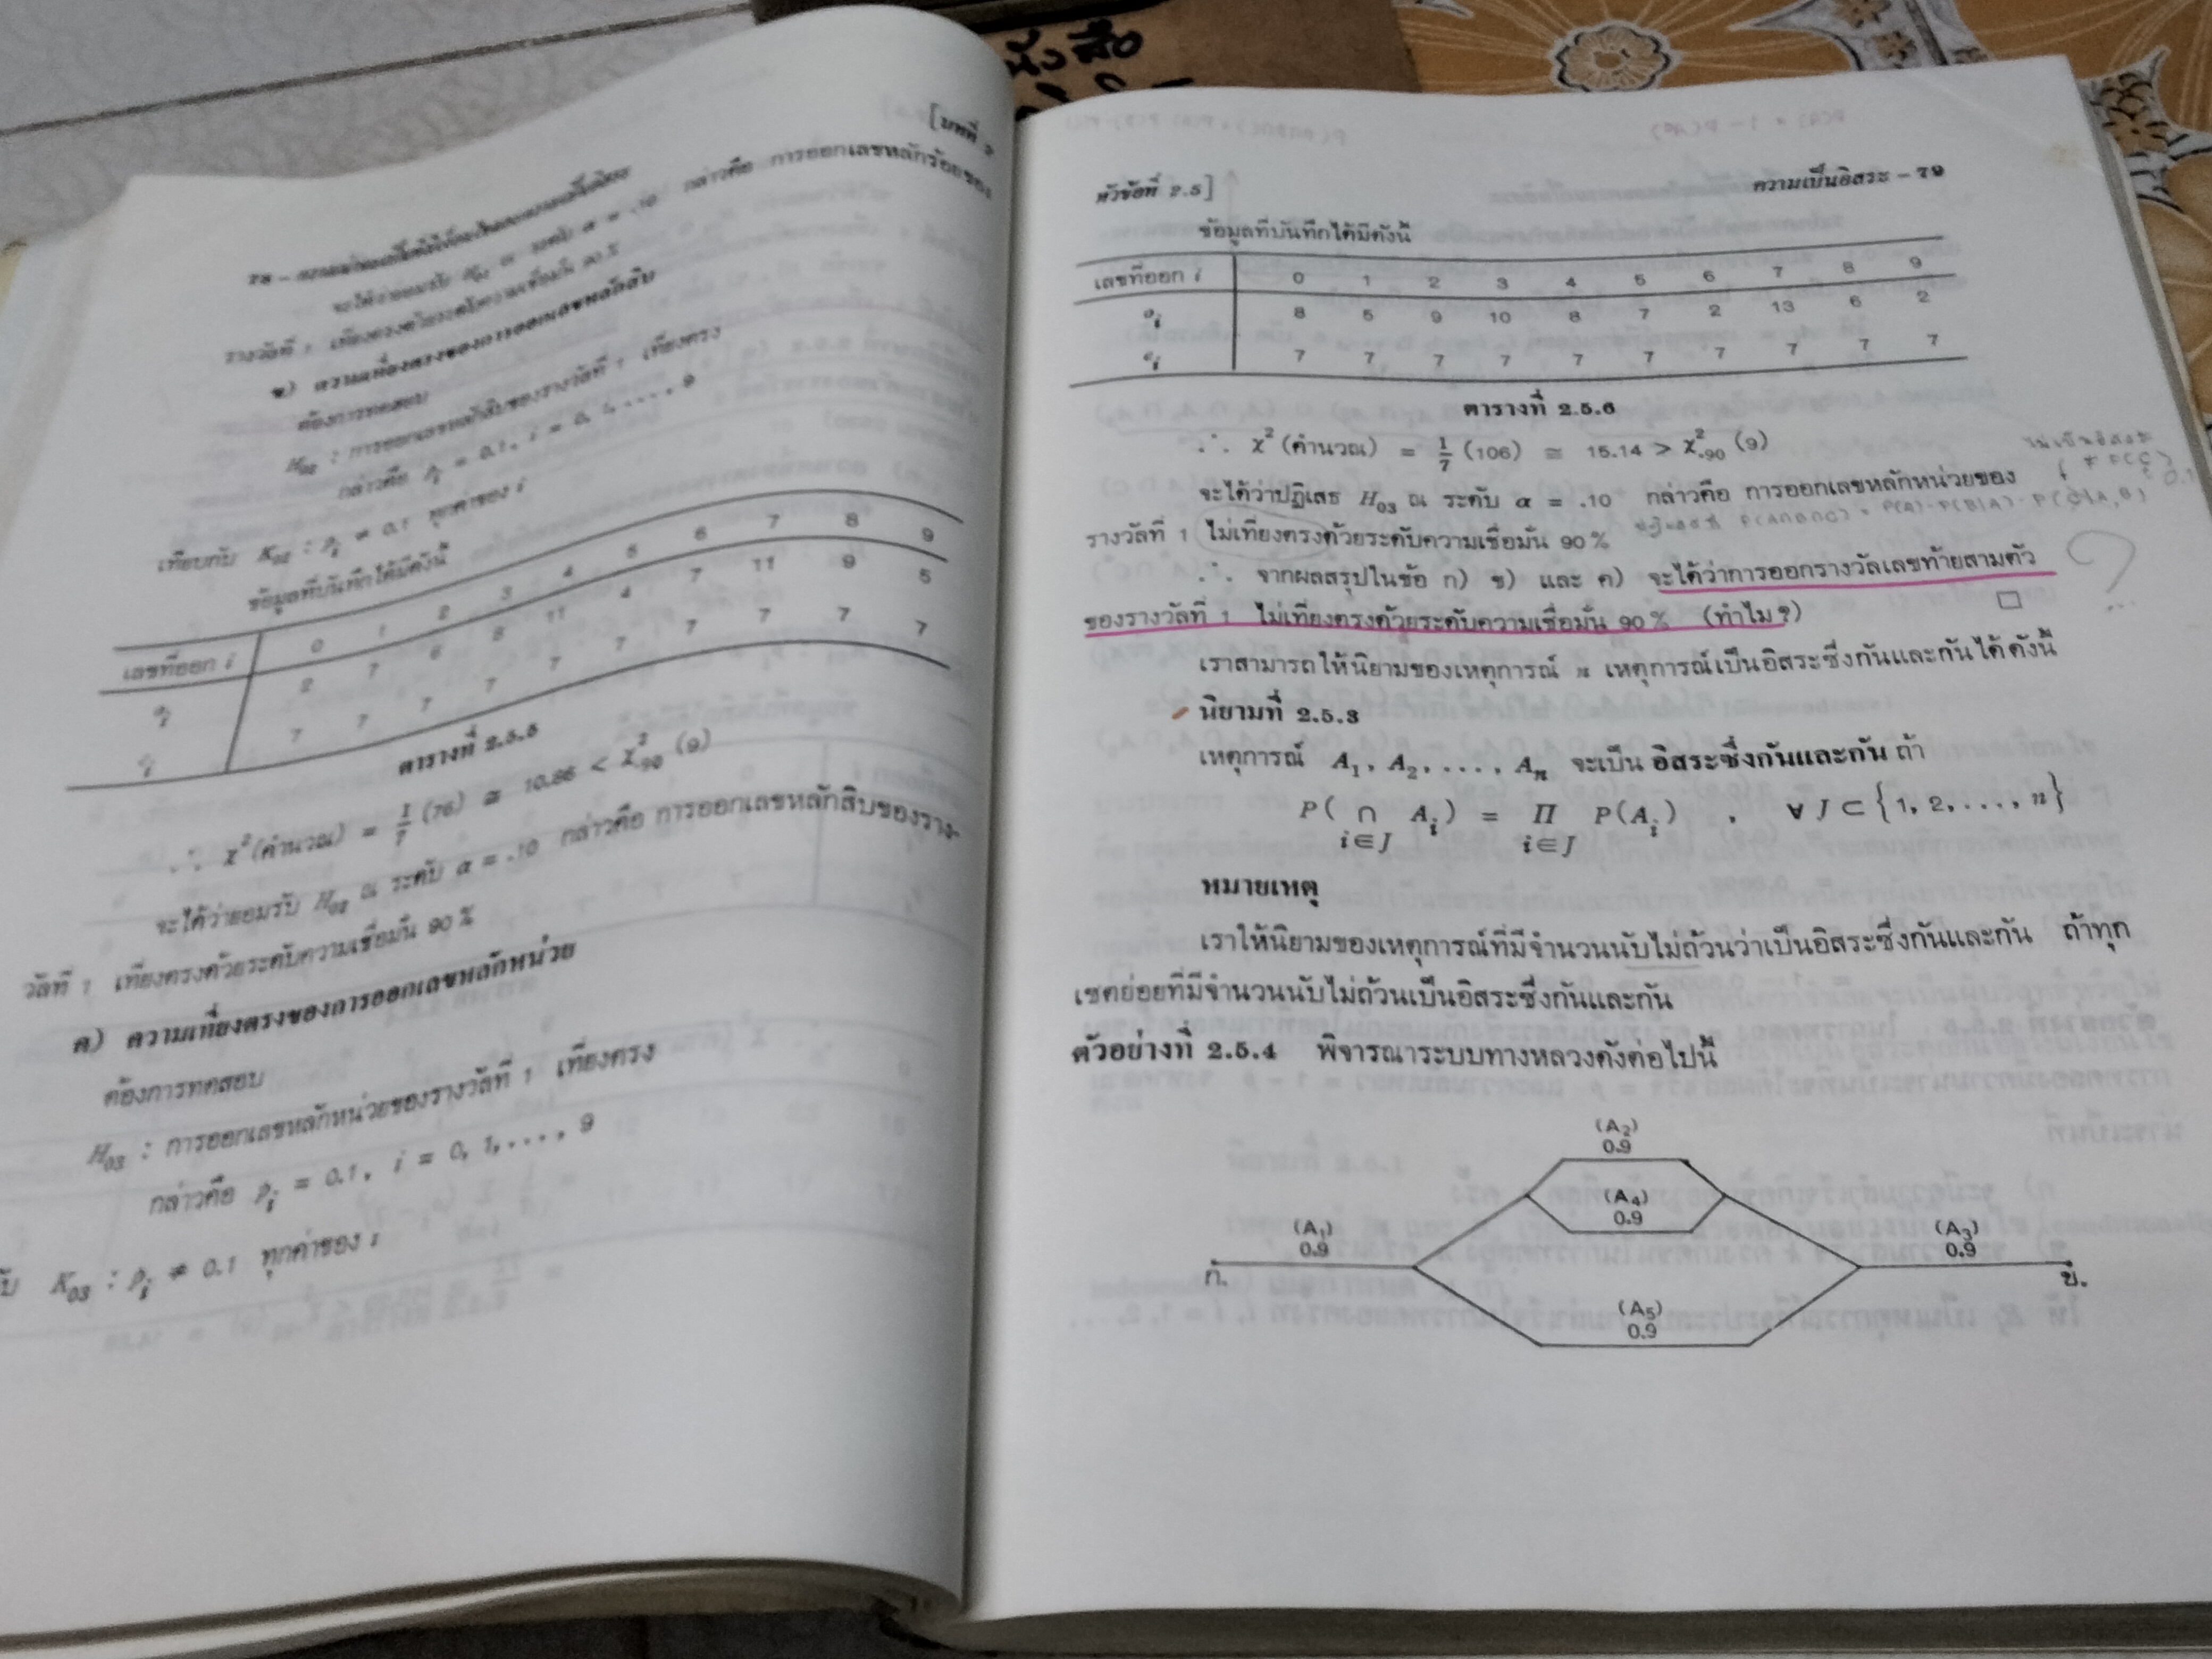 หนังสือ
[บทที่ 2
จะได้ว่ายอมรับ ณ ระดับ α = .10 กล่าวคือ การออกเลขหลักร้อยของ
รางวัลที่ 1 เที่ยงตรงด้วยระดับความเชื่อมั่น 90 %
ข) ความเที่ยงตรงของการออกเลขหลักสิบ
ต้องการทดสอบ
H₀₂ : การออกเลขหลักสิบของรางวัลที่ 1 เที่ยงตรง
กล่าวคือ pᵢ = 0.1, i = 0, 1, ..., 9
เทียบกับ K₀₂ : pᵢ ≠ 0.1 ทุกค่าของ i
ข้อมูลที่บันทึกได้มีดังนี้
เลขที่ออก i 0 1 2 3 4 5 6 7 8 9
oᵢ 2 7 6 8 11 4 7 11 9 5
eᵢ 7 7 7 7 7 7 7 7 7 7
ตารางที่ 2.5.5
∴ χ² (คำนวณ) = 1/7 (76) ≅ 10.86 < χ².₉₀ (9)
จะได้ว่ายอมรับ H₀₂ ณ ระดับ α = .10 กล่าวคือ การออกเลขหลักสิบของราง-
วัลที่ 1 เที่ยงตรงด้วยระดับความเชื่อมั่น 90 %
ค) ความเที่ยงตรงของการออกเลขหลักหน่วย
ต้องการทดสอบ
H₀₃ : การออกเลขหลักหน่วยของรางวัลที่ 1 เที่ยงตรง
กล่าวคือ pᵢ = 0.1, i = 0, 1, ..., 9
K₀₃ : pᵢ ≠ 0.1 ทุกค่าของ i
หัวข้อที่ 2.5] ความเป็นอิสระ – 79
ข้อมูลที่บันทึกได้มีดังนี้
เลขที่ออก i 0 1 2 3 4 5 6 7 8 9
oᵢ 8 5 9 10 8 7 2 13 6 2
eᵢ 7 7 7 7 7 7 7 7 7 7
ตารางที่ 2.5.6
∴ χ² (คำนวณ) = 1/7 (106) ≅ 15.14 > χ².₉₀ (9)
จะได้ว่าปฏิเสธ H₀₃ ณ ระดับ α = .10 กล่าวคือ การออกเลขหลักหน่วยของ
รางวัลที่ 1 ไม่เที่ยงตรงด้วยระดับความเชื่อมั่น 90 %
P(A∩B∩C) = P(A)·P(B|A)·P(C|A,B)
∴ จากผลสรุปในข้อ ก) ข) และ ค) จะได้ว่าการออกรางวัลเลขท้ายสามตัว
ของรางวัลที่ 1 ไม่เที่ยงตรงด้วยระดับความเชื่อมั่น 90 % (ทำไม ?) □
?
เราสามารถให้นิยามของเหตุการณ์ n เหตุการณ์เป็นอิสระซึ่งกันและกันได้ดังนี้
นิยามที่ 2.5.3
เหตุการณ์ A₁, A₂, ..., Aₙ จะเป็น อิสระซึ่งกันและกัน ถ้า
P( ∩ Aᵢ) = Π P(Aᵢ) , ∀ J ⊂ {1, 2, ..., n}
i∈J i∈J
หมายเหตุ
เราให้นิยามของเหตุการณ์ที่มีจำนวนนับไม่ถ้วนว่าเป็นอิสระซึ่งกันและกัน ถ้าทุก
เซตย่อยที่มีจำนวนนับไม่ถ้วนเป็นอิสระซึ่งกันและกัน
ตัวอย่างที่ 2.5.4 พิจารณาระบบทางหลวงดังต่อไปนี้
(A₂)
0.9
(A₄)
0.9
(A₁)
0.9
(A₃)
0.9
ก.
ข.
(A₅)
0.9